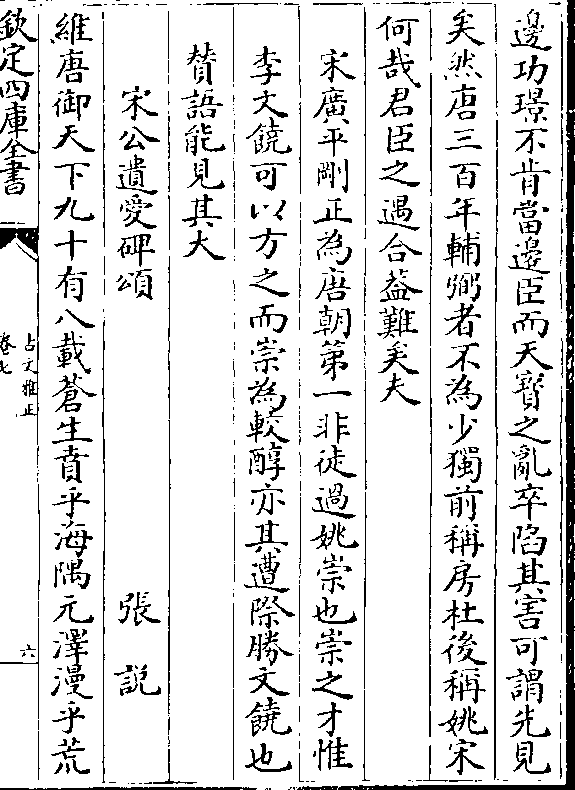 邊功璟不肯當邊臣而天寶之亂卒陷其害可謂先見
矣然唐三百年輔弼者不為少獨前稱房杜後稱姚宋
何哉君臣之遇合葢難矣夫
宋廣平剛正為唐朝第一非徒過姚崇也崇之才惟
李文饒可以方之而崇為較醇亦其遭際勝文饒也
賛語能見其大
宋公遺愛碑頌 張説
維唐御天下九十有八載蒼生賁乎海隅元澤漫乎荒
欽定四庫全書
古文雅正
卷七
六